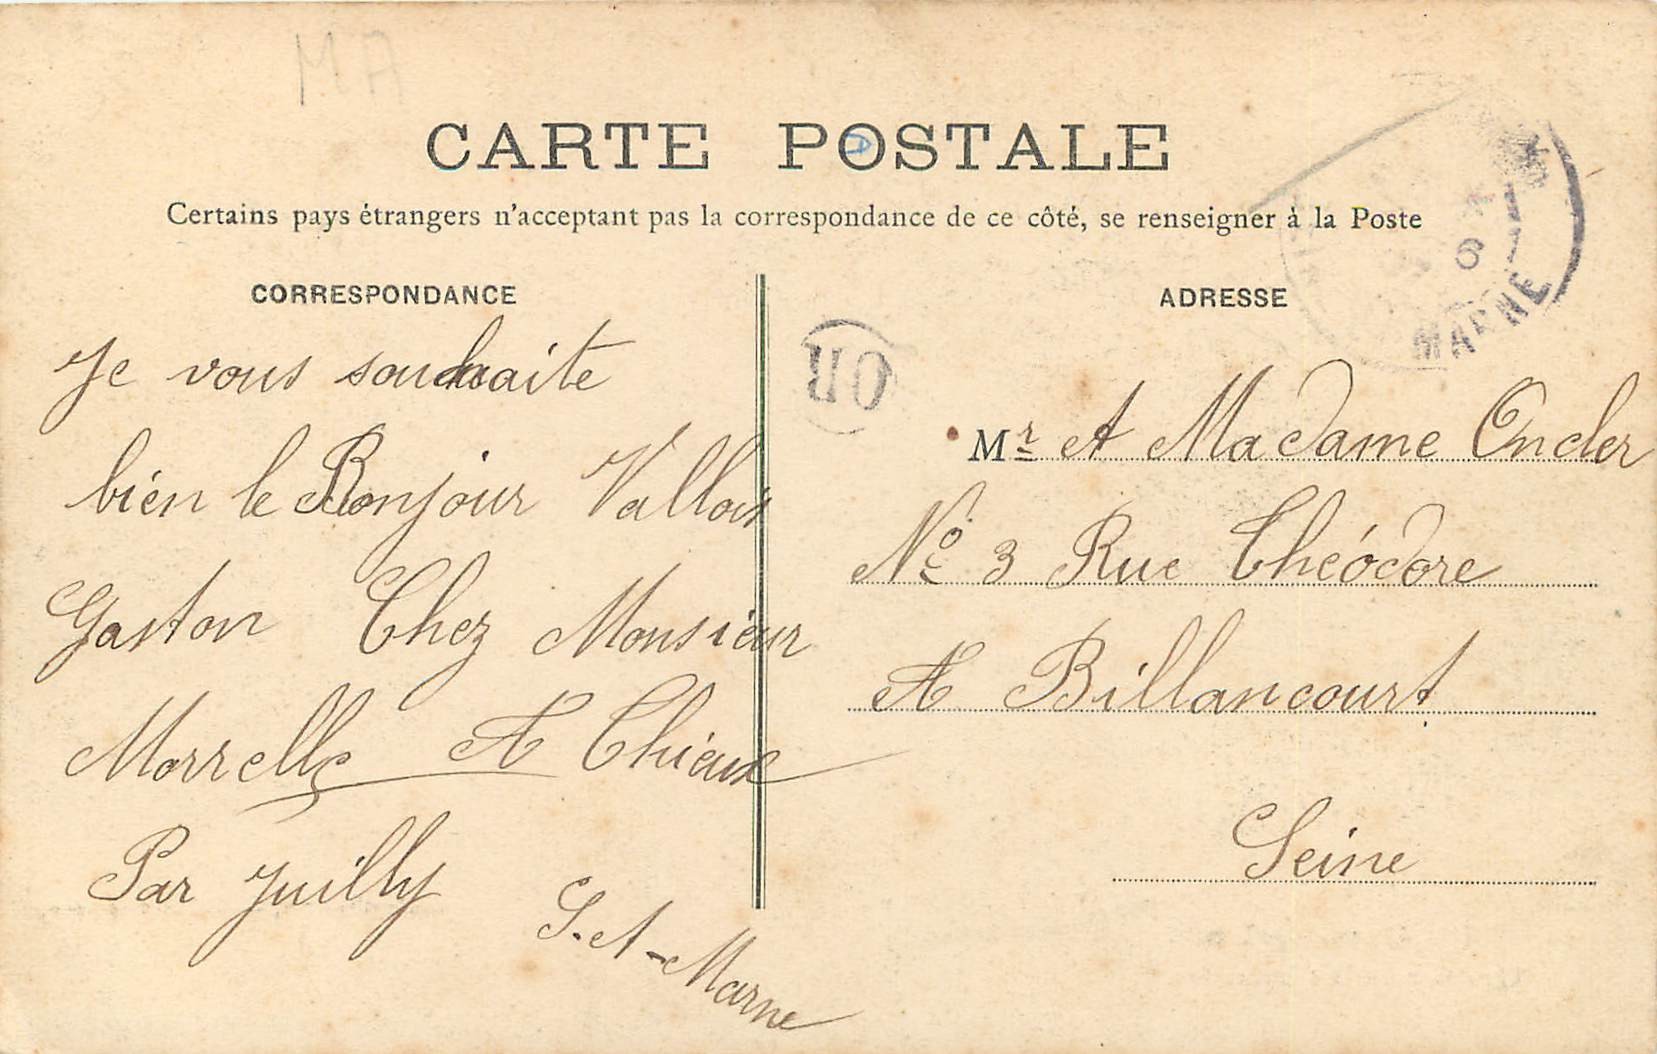 MA
CARTE POSTALE
Certains pays étrangers n'acceptant pas la correspondance de ce côté, se renseigner à la Poste
CORRESPONDANCE
Je vous souhaite
bien le Bonjour Vallois
Gaston Chez Monsieur
Morrelle A Thieux
Par Juilly
S.et-Marne
ADRESSE
OR
6
MARNE
Mr et Madame Onder
No 3 Rue Théodore
A Billancourt
Seine